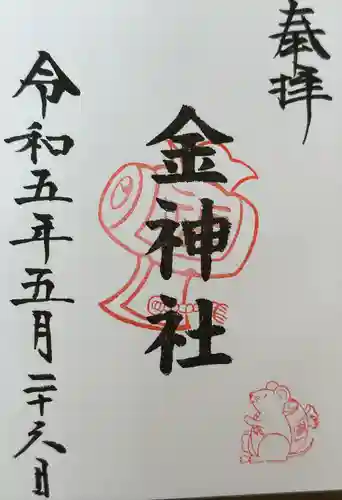 奉拝
金神社
令和五年五月二十六日